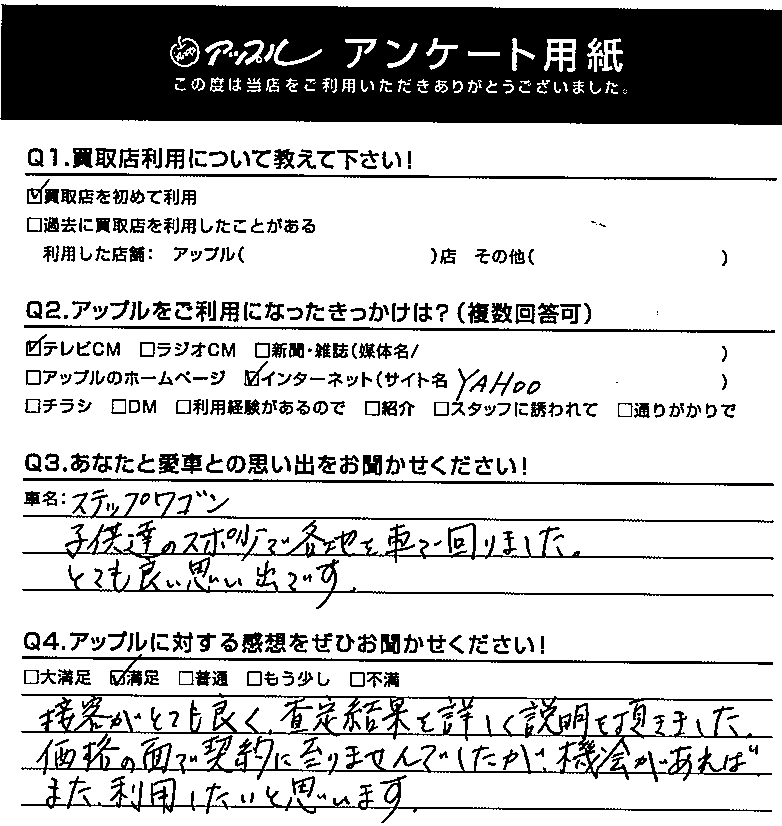 アップル アンケート用紙
この度は当店をご利用いただきありがとうございました。
Q1.買取店利用について教えて下さい!
☑買取店を初めて利用
□過去に買取店を利用したことがある
利用した店舗: アップル( )店 その他( )
Q2.アップルをご利用になったきっかけは?(複数回答可)
☑テレビCM □ラジオCM □新聞・雑誌(媒体名/ )
□アップルのホームページ ☑インターネット(サイト名 YAHOO )
□チラシ □DM □利用経験があるので □紹介 □スタッフに誘われて □通りがかりで
Q3.あなたと愛車との思い出をお聞かせください!
車名:ステップワゴン
子供達のスポーツで各地を車で回りました。
とても良い思い出です。
Q4.アップルに対する感想をぜひお聞かせください!
□大満足 ☑満足 □普通 □もう少し □不満
接客がとても良く、査定結果を詳しく説明を頂きました。
価格の面で契約に至りませんでしたが、機会があれば
また、利用したいと思います。